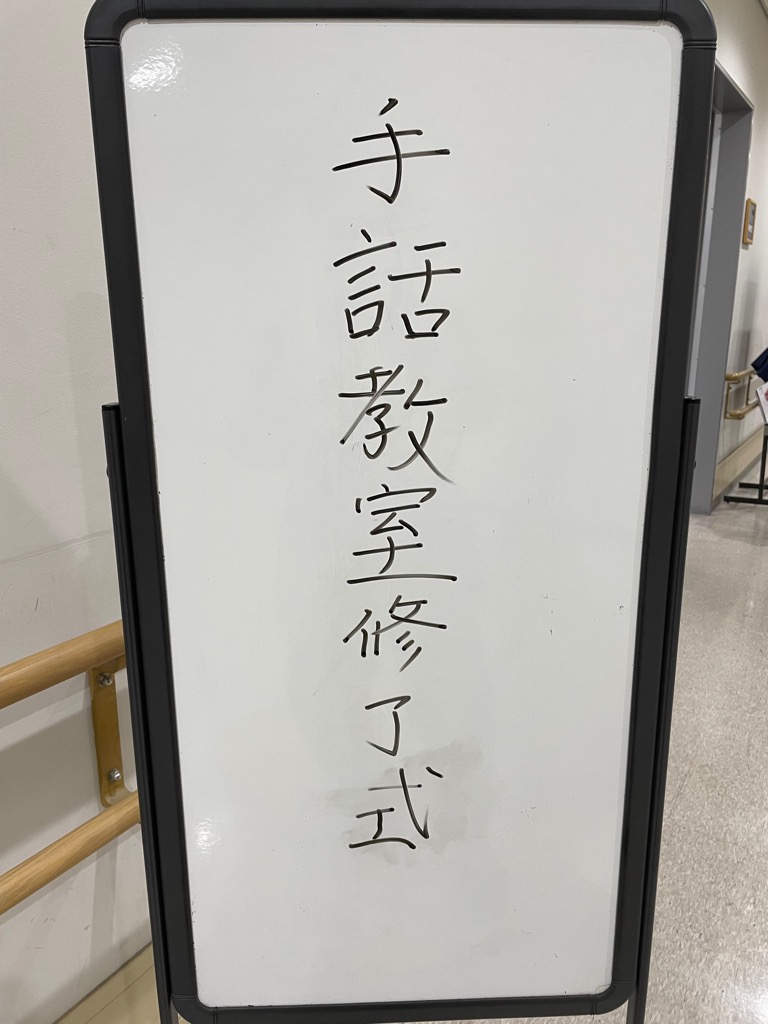 手話教室修了式